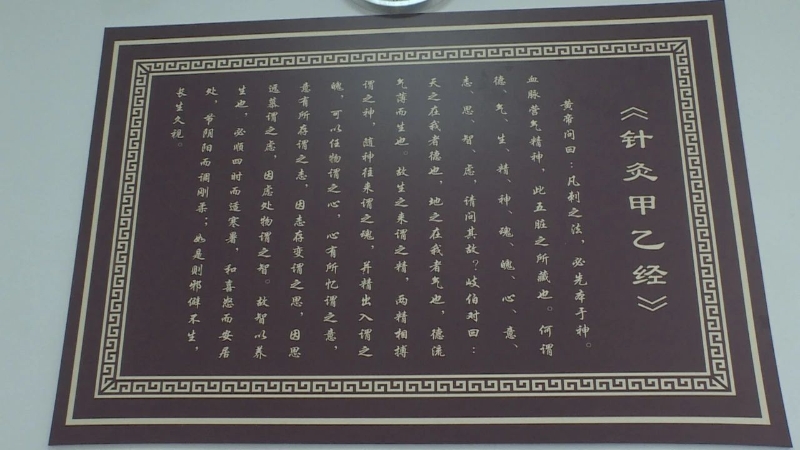 《针灸甲乙经》
黄帝问曰：凡刺之法，必先本于神。
血脉营气精神，此五脏之所藏也。何谓
德、气、生、精、神、魂、魄、心、意、
志、思、智、虑，请问其故？岐伯对曰：
天之在我者德也，地之在我者气也，德流
气薄而生也。故生之来谓之精，两精相搏
谓之神，随神往来谓之魂，并精出入谓之
魄，可以任物谓之心，心有所忆谓之意，
意有所存谓之志，因志存变谓之思，因思
远慕谓之虑，因虑处物谓之智。故智以养
生也，必顺四时而适寒暑，和喜怒而安居
处，节阴阳而调刚柔；如是则邪僻不生，
长生久视。